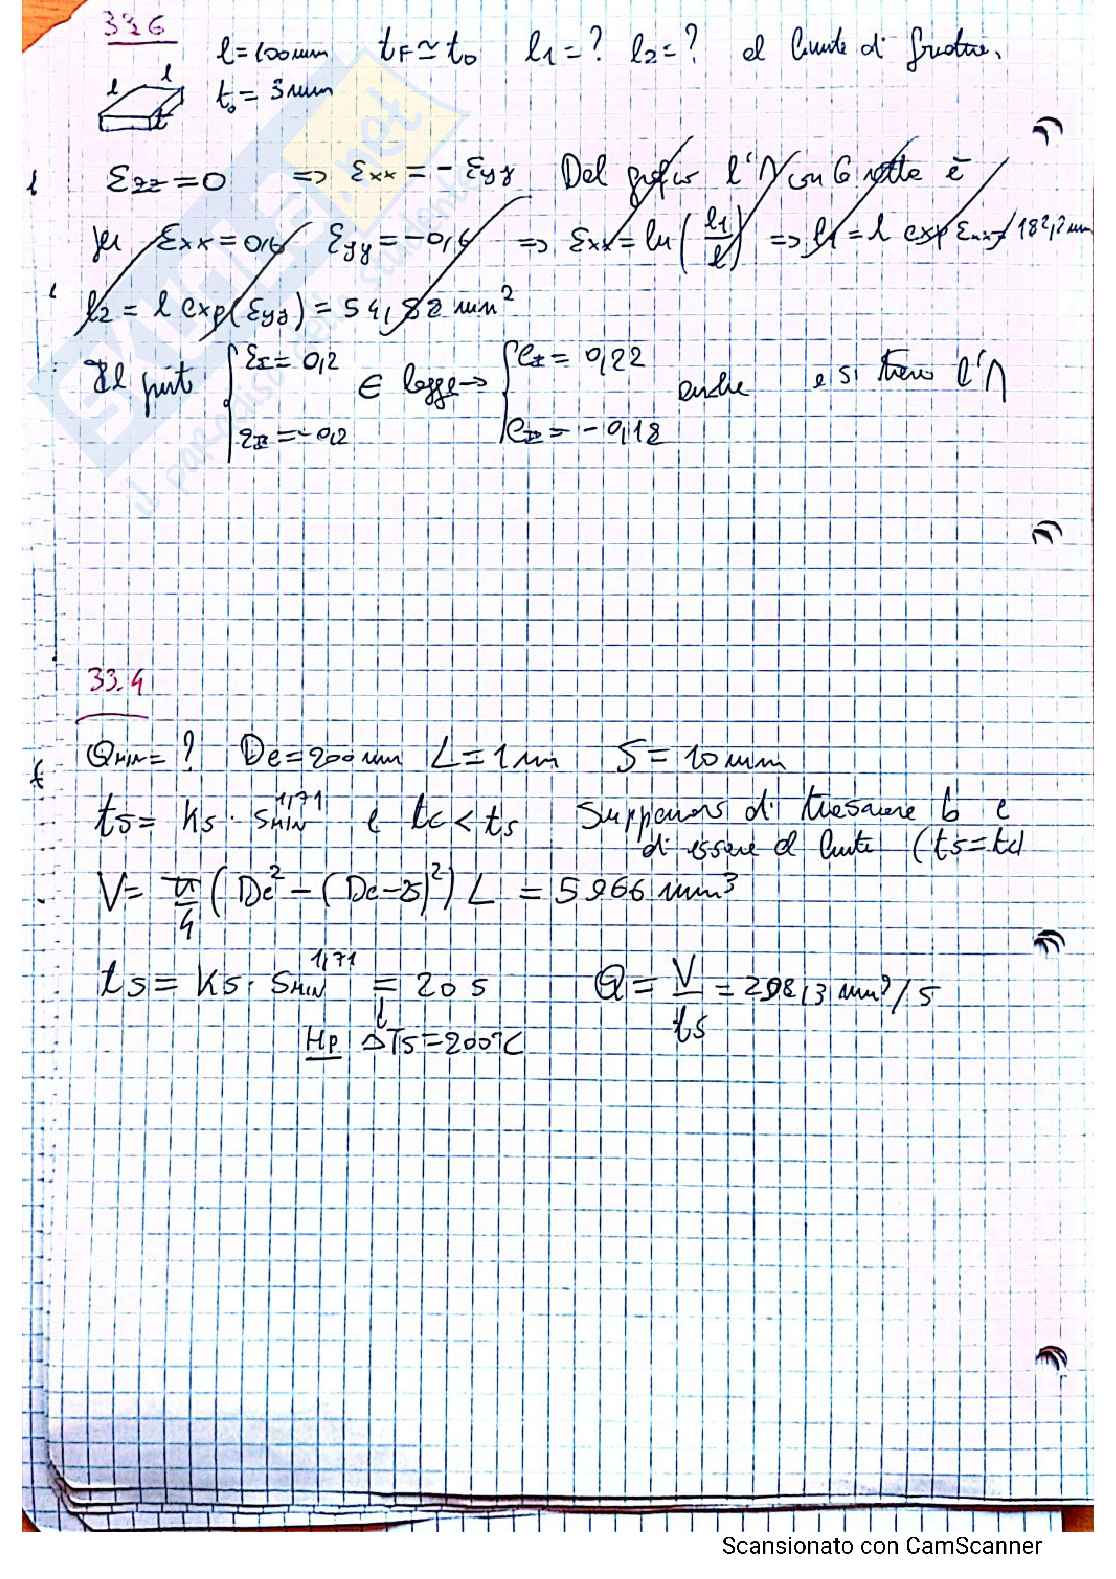 336
l = 100mm   tF ≃ t0   l1 = ?   l2 = ?   al limite di frattura.
l   l   t0 = 3mm
t
εzz = 0   ⇒ εxx = - εyy   Dal grafico l'∩ con la retta è
per εxx = 0,6   εyy = -0,6   ⇒ εxx = ln(l1/l) ⇒ l1 = l exp εxx = 182,2 mm
l2 = l exp(εyy) = 54,88 mm²
Il punto { εI = 0,2   εII = -0,2   ∈ legge → { eI = 0,22   eII = -0,18   anche   e si trova l'∩
33.4
QMIN = ?   De = 200mm   L = 1m   S = 10mm
ts = Ks · SMIN^1,71   e   tc < ts   Supponiamo di trascurare b e
di essere al limite (ts = tc)
V = π/4 (De² - (De-2S)²) L = 5966 mm³
ts = Ks · SMIN^1,71 = 20 s   Q = V/ts = 298,3 mm³/s
Hp   ΔTs = 200°C
Scansionato con CamScanner